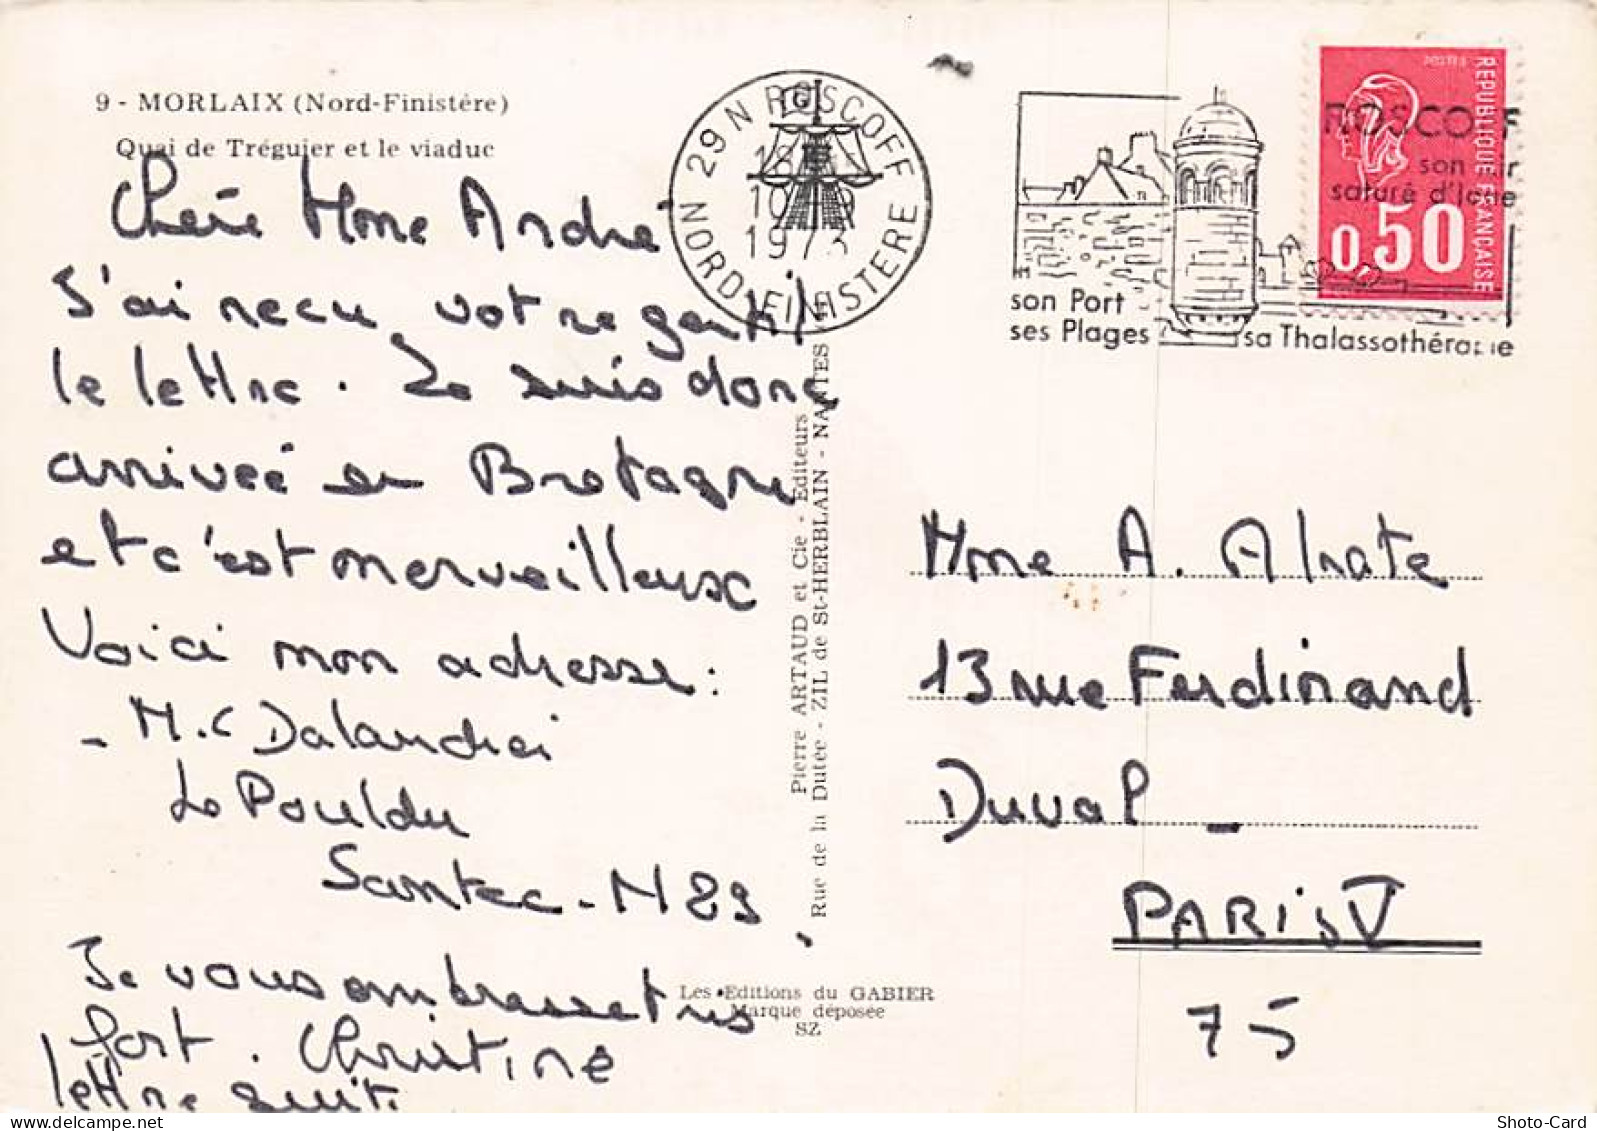 9 - MORLAIX (Nord-Finistére)
Quai de Tréguier et le viaduc
Chère Mme André
J'ai recu votre genti
lle lettre. Je suis donc
arrivée en Bretagne
et c'est merveilleux
Voici mon adresse:
- M.C Dalaudrei
Le Pouldu
Santec - N 29
Je vous embrasse très
fort. Christine
lettre suit.
29 N ROSCOFF
18
10
1973
NORD-FINISTERE
ROSCOFF
son air
saturé d'Iode
son Port
ses Plages
sa Thalassothérapie
POSTES
REPUBLIQUE FRANÇAISE
0,50
Pierre ARTAUD et Cie - Editeurs
Rue de la Dutée - ZIL de St-HERBLAIN - NANTES
Mme A.
13 rue Ferdinand
Duval -
PARIS V
75
Les Editions du GABIER
Marque déposée
SZ
Shoto-Card